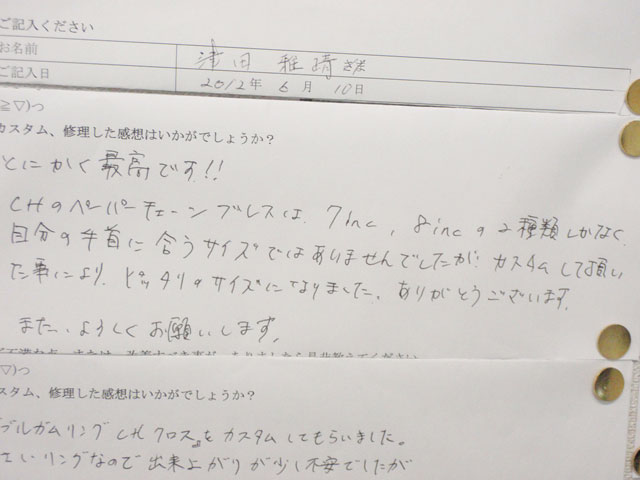 ご記入ください
お名前 津田 雅晴 さま
ご記入日 2012年 6月 10日
≧▽)っ
カスタム、修理した感想はいかがでしょうか?
とにかく最高です!!
CHのペーパーチェーンブレスは、7inc, 8incの2種類しかなく、
自分の手首に合うサイズではありませんでしたが、カスタムして頂い
た事により、ピッタリのサイズになりました。ありがとうございます。
また、よろしくお願いします。
▽)っ
スタム、修理した感想はいかがでしょうか?
ブルガムリングCHクロス』をカスタムしてもらいました。
いリングなので出来上がりが少し不安でしたが